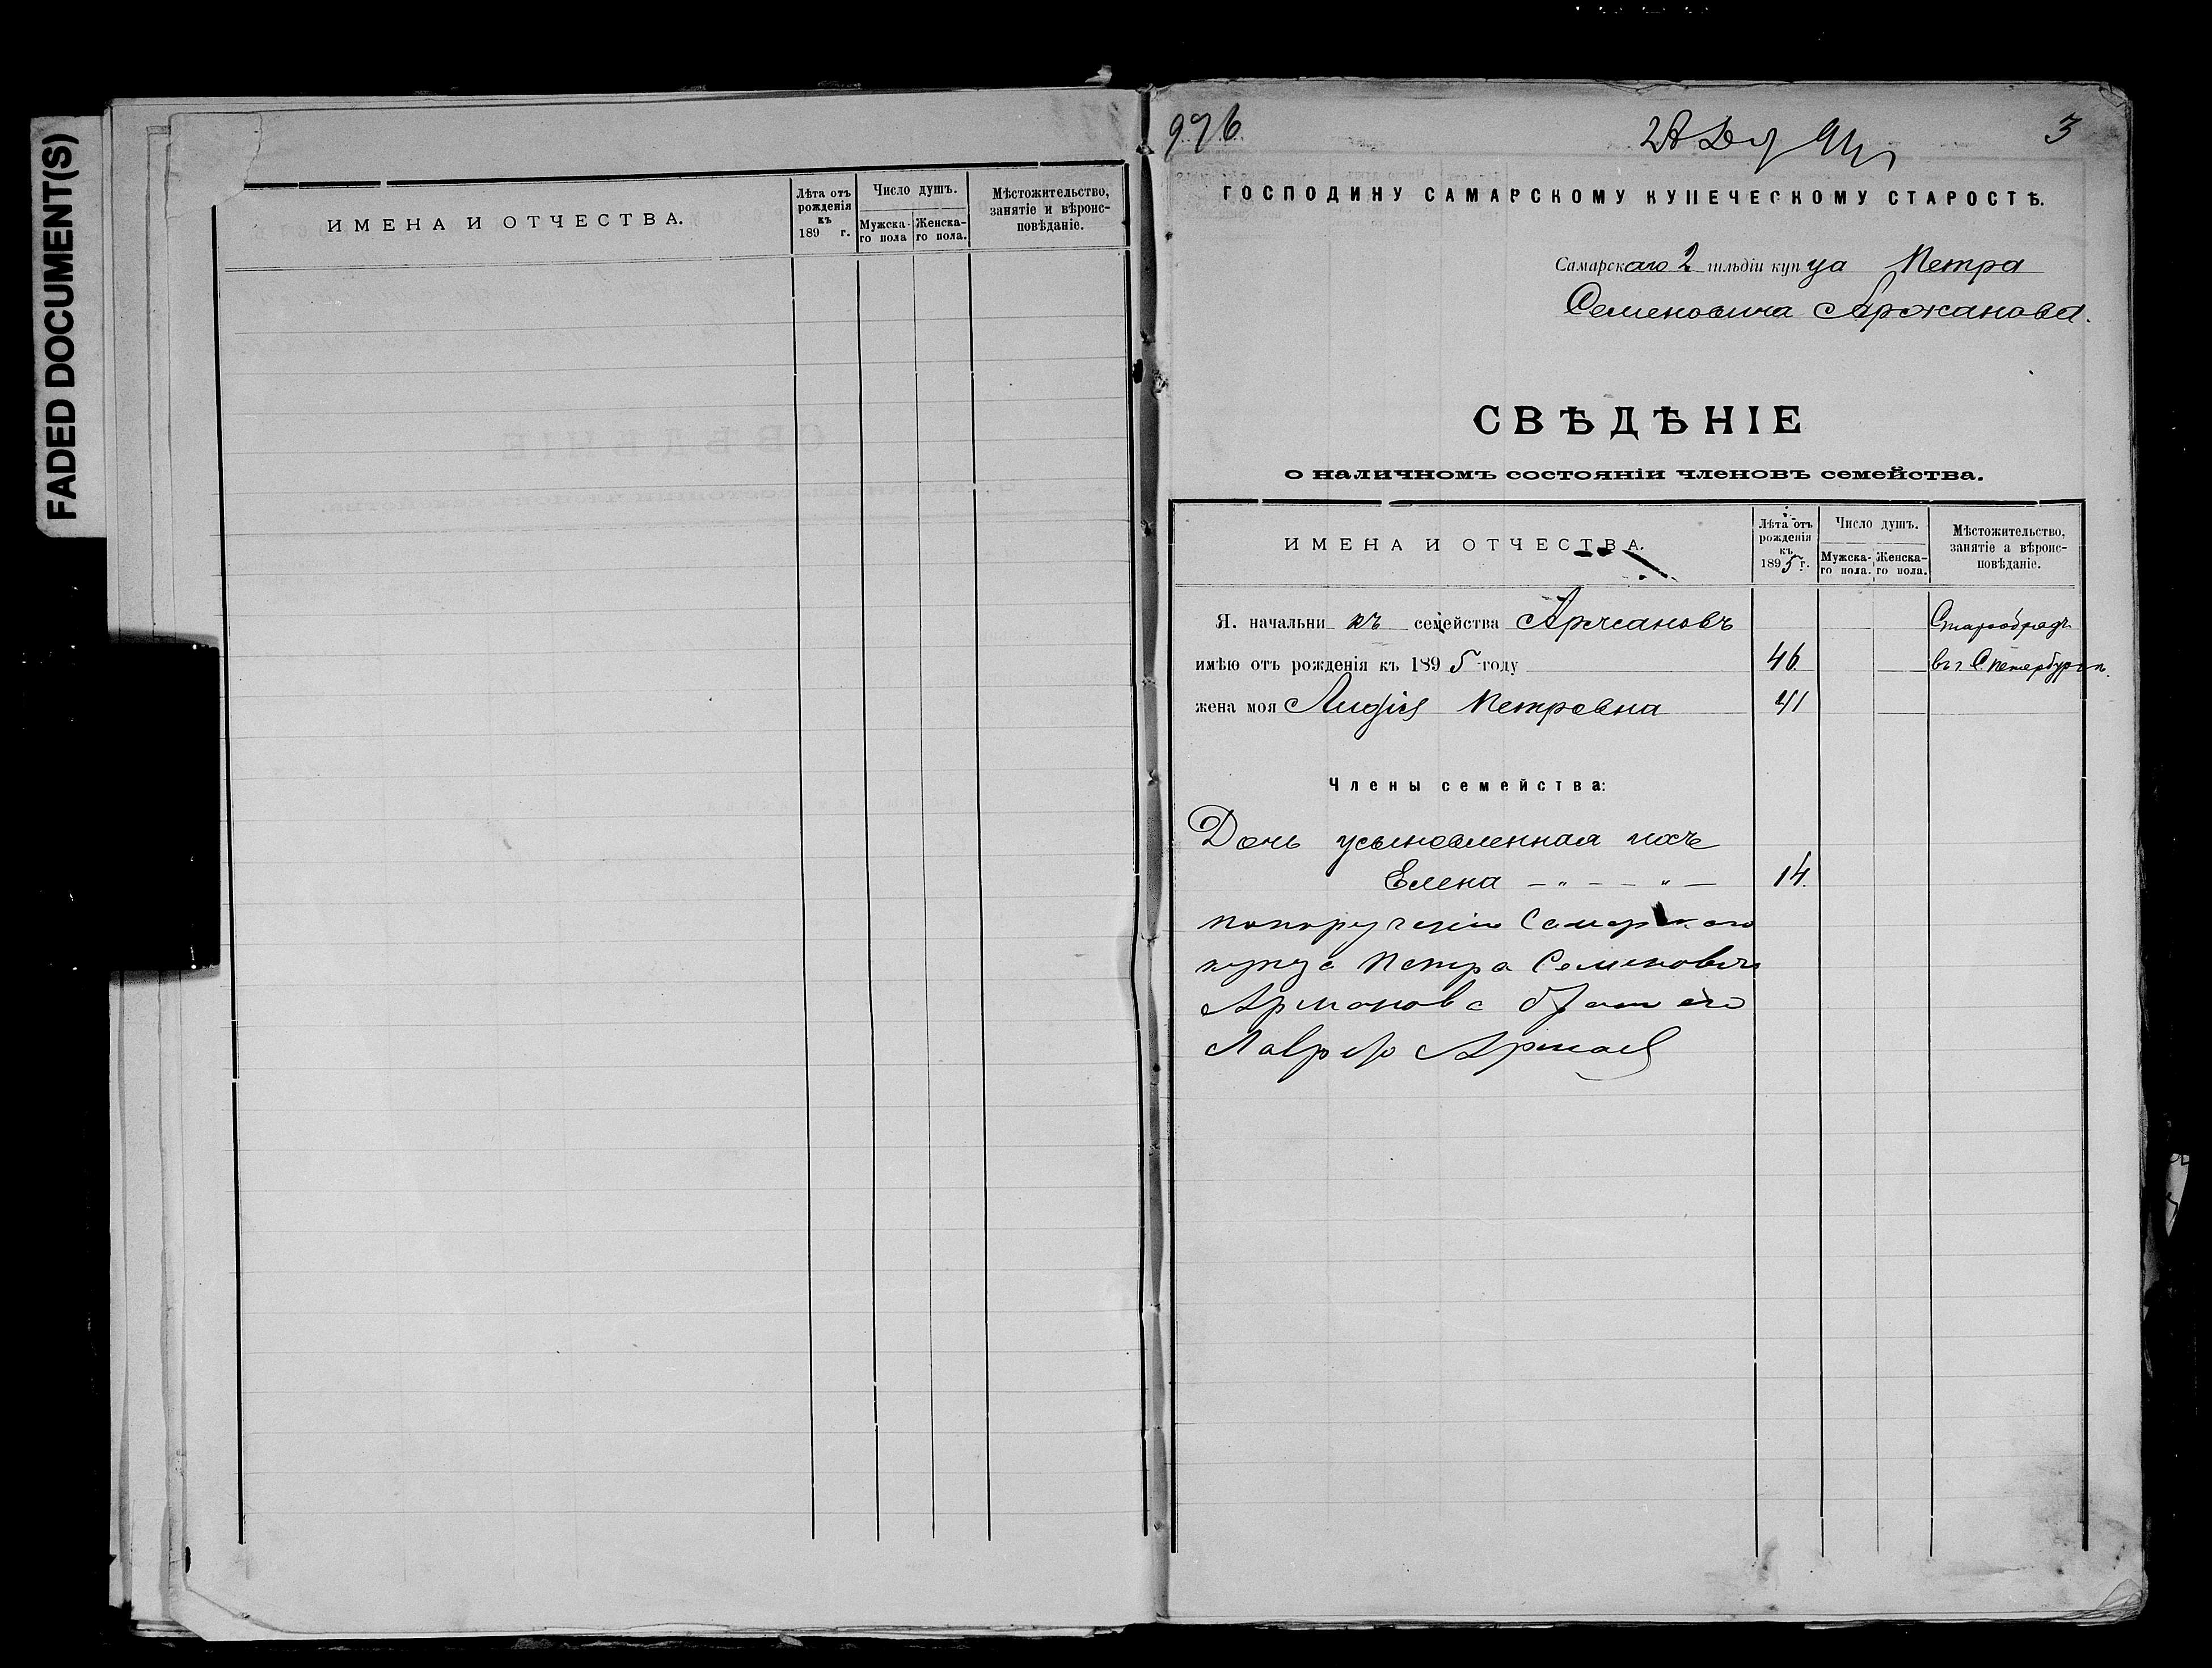 FADED DOCUMENT(S)
ИМЕНА И ОТЧЕСТВА.
Лѣта отъ рожденія къ 189 г.
Число душъ.
Мужска-го пола
Женска-го пола.
Мѣстожительство, занятіе и вѣроис-повѣданіе.
996
3
ГОСПОДИНУ САМАРСКОМУ КУПЕЧЕСКОМУ СТАРОСТѢ.
Самарскаго 2 гильдіи купца Петра
Семеновича Аржанова.
СВѢДѢНІЕ
о наличномъ состояніи членовъ семейства.
ИМЕНА И ОТЧЕСТВА.
Лѣта отъ рожденія къ 1895 г.
Число душъ.
Мужска-го пола.
Женска-го пола.
Мѣстожительство, занятіе а вѣроис-повѣданіе.
Я. начальникъ семейства Аржановъ
Старообрядъ
имѣю отъ рожденія къ 1895 году 46
въ г. С.Петербургѣ.
жена моя Лидія Петровна 41
Члены семейства:
Дочь усыновленная ихъ
Елена — „ — — „ — 14.
по поручению Самарского
купца Петра Семеновича
Аржанова брат его
Лавр